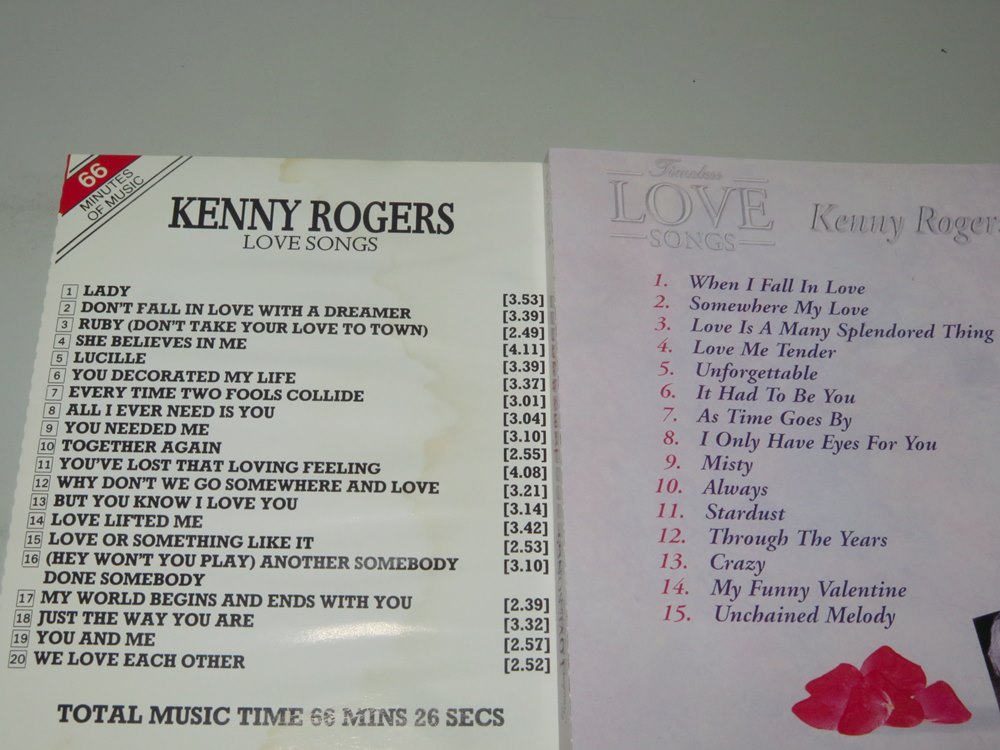 66
MINUTES
OF MUSIC
KENNY ROGERS
LOVE SONGS
1 LADY [3.53]
2 DON'T FALL IN LOVE WITH A DREAMER [3.39]
3 RUBY (DON'T TAKE YOUR LOVE TO TOWN) [2.49]
4 SHE BELIEVES IN ME [4.11]
5 LUCILLE [3.39]
6 YOU DECORATED MY LIFE [3.37]
7 EVERY TIME TWO FOOLS COLLIDE [3.01]
8 ALL I EVER NEED IS YOU [3.04]
9 YOU NEEDED ME [3.10]
10 TOGETHER AGAIN [2.55]
11 YOU'VE LOST THAT LOVING FEELING [4.08]
12 WHY DON'T WE GO SOMEWHERE AND LOVE [3.21]
13 BUT YOU KNOW I LOVE YOU [3.14]
14 LOVE LIFTED ME [3.42]
15 LOVE OR SOMETHING LIKE IT [2.53]
16 (HEY WON'T YOU PLAY) ANOTHER SOMEBODY [3.10]
DONE SOMEBODY
17 MY WORLD BEGINS AND ENDS WITH YOU [2.39]
18 JUST THE WAY YOU ARE [3.32]
19 YOU AND ME [2.57]
20 WE LOVE EACH OTHER [2.52]
TOTAL MUSIC TIME 66 MINS 26 SECS
Timeless
LOVE
SONGS
Kenny Rogers
1. When I Fall In Love
2. Somewhere My Love
3. Love Is A Many Splendored Thing
4. Love Me Tender
5. Unforgettable
6. It Had To Be You
7. As Time Goes By
8. I Only Have Eyes For You
9. Misty
10. Always
11. Stardust
12. Through The Years
13. Crazy
14. My Funny Valentine
15. Unchained Melody